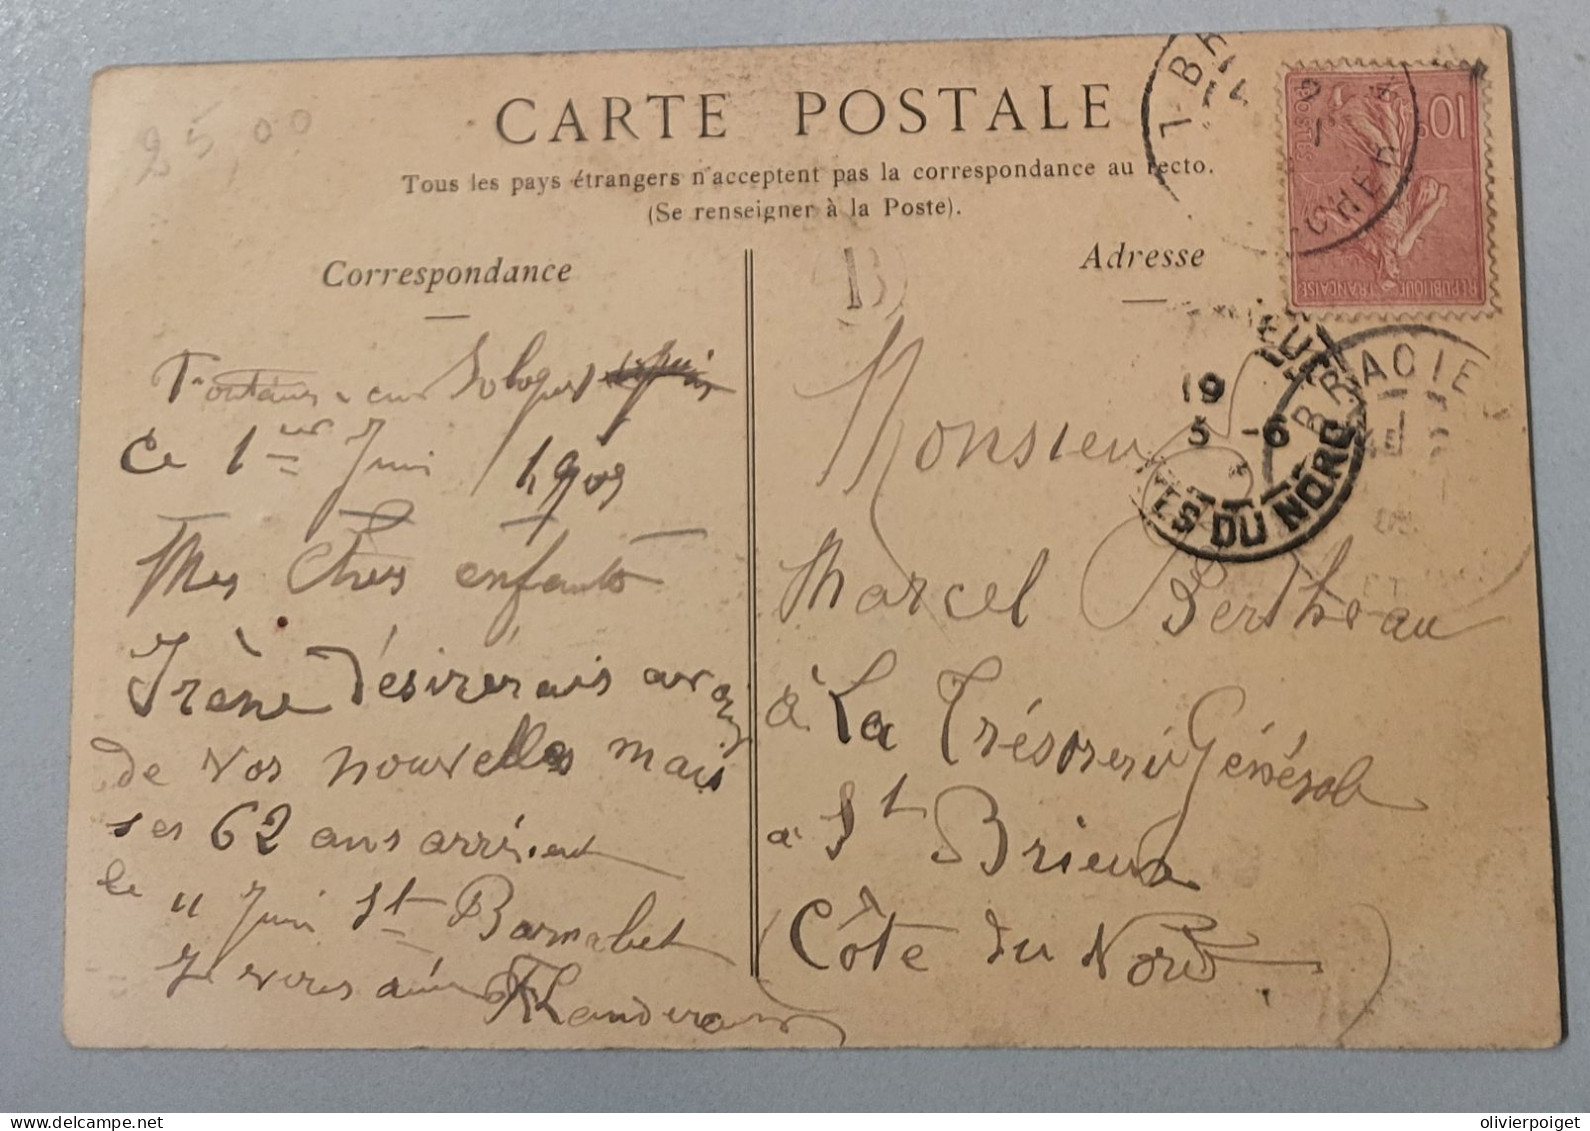 25,00
CARTE POSTALE
Tous les pays étrangers n'acceptent pas la correspondance au recto.
(Se renseigner à la Poste).
Correspondance
Adresse
B
10c
POSTES
REPUBLIQUE FRANÇAISE
BRACIE
19
5 -6
ES DU NORD
CHER
en Sologne
Ce 1er Juin 1905
Mes Chers enfants
Irène désirerais avoir
de vos nouvelles mais
ses 62 ans arrivent
le 11 Juin St Barnabet
Je vous aime
Monsieur
Marcel Bertheau
à La Trésorerie Générale
à St Brieux
Côte du Nord
olivierpoiget